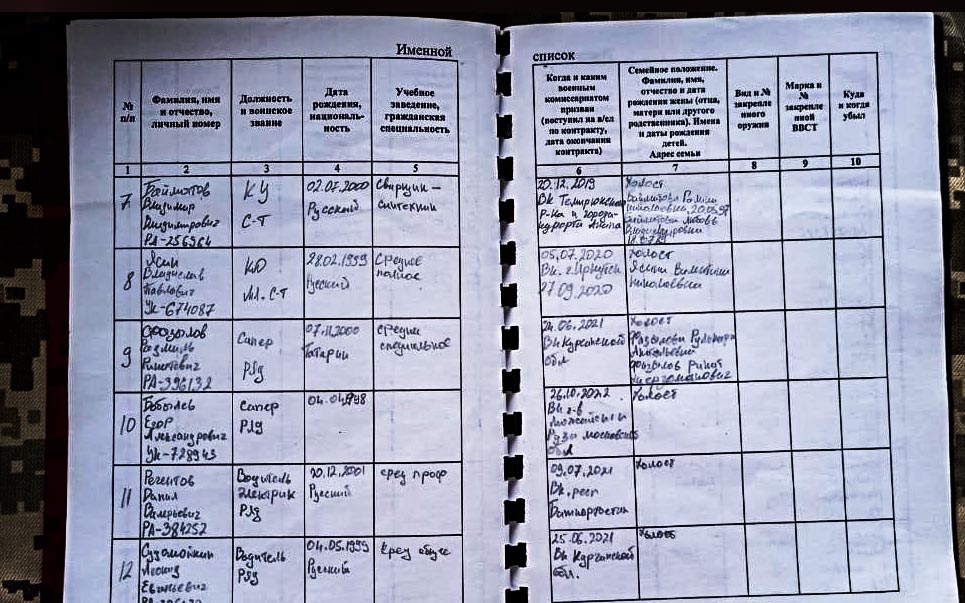 Именной
список
№ п/п
Фамилия, имя
и отчество,
личный номер
Должность
и воинское
звание
Дата
рождения,
националь-
ность
Учебное
заведение,
гражданская
специальность
Когда и каким
военным
комиссариатом
призван
(поступил на в/сл
по контракту,
дата окончания
контракта)
Семейное положение.
Фамилия, имя,
отчество и дата
рождения жены (отца,
матери или другого
родственника). Имена
и даты рождения
детей.
Адрес семьи
Вид и №
закрепле
нного
оружия
Марка и
№
закрепле
нной
ВВСТ
Куда
и когда
убыл
1 2 3 4 5 6 7 8 9 10
7
Владимир
РА-256964
КУ
С-Т
02.07.2000
Русский
Сварщик –
сантехник
20.12.2019
Вк Темрюкского
р-на и города-
курорта Анапа
Холост
20.05.97
8
Ясин
Владислав
Павлович
УК-674087
КО
Мл. С-Т
28.02.1999
Русский
Среднее
полное
05.07.2020
Вк. г. Иркутск
27.09.2020
Холост
Николаевна
9
РА-396132
Сапер
Ряд
07.11.2000
Татарин
средне
специальное
24.06.2021
Вк Курганской
обл
Холост
10
Бобылев
Егор
Александрович
УК-728943
Сапер
Ряд
04.04.1998
26.10.2022
Вк г-в
Можайск и
Руза московской
обл
Холост
11
Регентов
Данил
Валерьевич
РА-384252
Водитель
Электрик
Ряд
20.12.2001
Русский
сред проф
09.07.2021
Вк, респ
Башкортостан
Холост
12
Судомойкин
Леонид
Евгеньевич
Водитель
Ряд
04.05.1999
Русский
Сред общее
25.06.2021
Вк Курганской
обл.
Холост